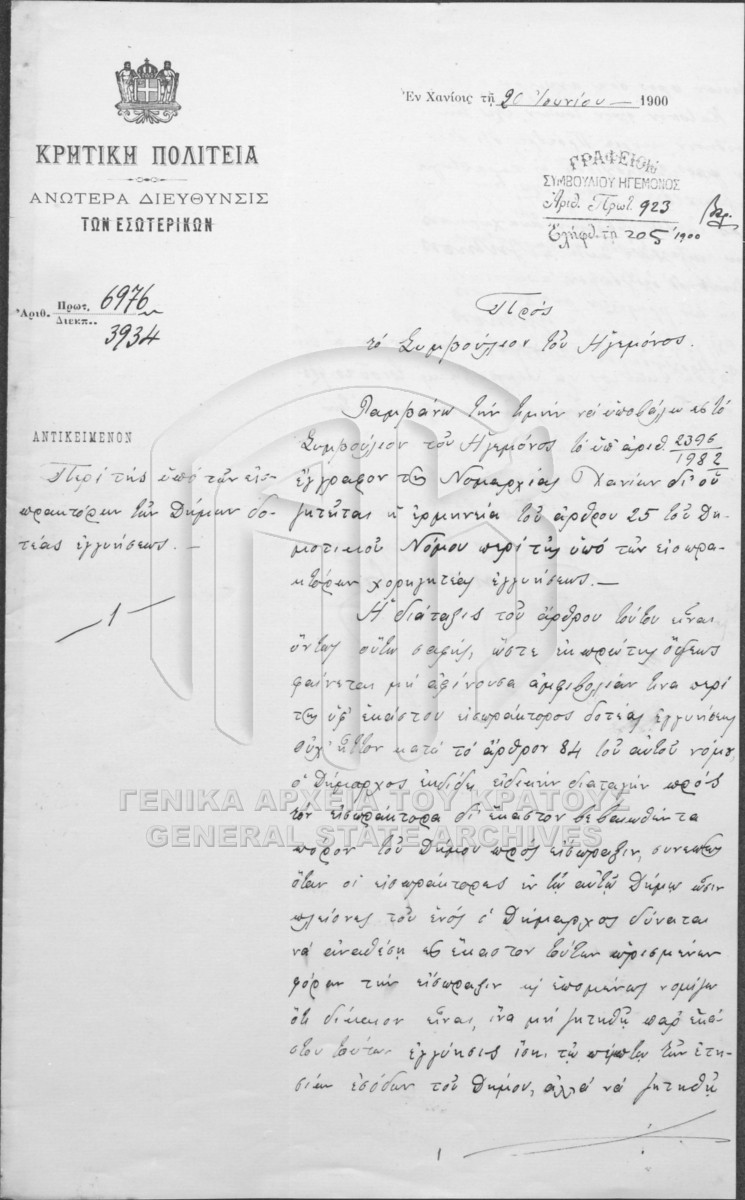 Ἐν Χανίοις τῇ 20 Ἰουνίου 1900
ΚΡΗΤΙΚΗ ΠΟΛΙΤΕΙΑ
ΑΝΩΤΕΡΑ ΔΙΕΥΘΥΝΣΙΣ
ΤΩΝ ΕΣΩΤΕΡΙΚΩΝ
ΓΡΑΦΕΙΟΝ
ΣΥΜΒΟΥΛΙΟΥ ΗΓΕΜΟΝΟΣ
Ἀριθ. Πρωτ. 923
Ἐλήφθ. τῇ 20 5 1900
Ἀριθ. Πρωτ. 6976
Διεκπ. 3934
Πρὸς
τὸ Συμβούλιον τοῦ Ἡγεμόνος.
ΑΝΤΙΚΕΙΜΕΝΟΝ
Περὶ τῆς ὑπὸ τῶν εἰσ-
πρακτόρων τῶν Δήμων δο-
τέας ἐγγυήσεως.—
1
Λαμβάνω τὴν τιμὴν νὰ ὑποβάλω εἰς τὸ
Συμβούλιον τοῦ Ἡγεμόνος τὸ ὑπ' ἀριθ. 2396
1982
ἔγγραφον τῆς Νομαρχίας Χανίων δι' οὗ
ζητεῖται ἡ ἑρμηνεία τοῦ ἄρθρου 25 τοῦ Δη-
μοτικοῦ Νόμου περὶ τῆς ὑπὸ τῶν εἰσπρα-
κτόρων χορηγητέας ἐγγυήσεως.—
Ἡ διάταξις τοῦ ἄρθρου τούτου εἶναι
ὄντως οὕτω σαφής, ὥστε ἐκ πρώτης ὄψεως
φαίνεται μὴ ἀφίνουσα ἀμφιβολίαν τινα περὶ
τῆς ὑφ' ἑκάστου εἰσπράκτορος δοτέας ἐγγυήσεως
οὐχ' ἧττον κατὰ τὸ ἄρθρον 84 τοῦ αὐτοῦ νόμου,
ὁ Δήμαρχος ἐκδίδει εἰδικὴν διαταγὴν πρὸς
τὸν εἰσπράκτορα δι' ἕκαστον βεβαιωθέντα
πόρον τοῦ Δήμου πρὸς εἴσπραξιν, συνεπῶς
ὅταν οἱ εἰσπράκτορες ἐν τῷ αὐτῷ Δήμῳ ὦσιν
πλείονες τοῦ ἑνὸς ὁ Δήμαρχος δύναται
νὰ ἀναθέσῃ εἰς ἕκαστον τούτων ὡρισμένων
φόρων τὴν εἴσπραξιν καὶ ἑπομένως νομίζω
ὅτι δίκαιον εἶναι, ἵνα μὴ ζητηθῇ παρ' ἑκά-
στου τούτων ἐγγύησις ἴση τῷ πέμπτῳ τῶν ἐτη-
σίων ἐσόδων τοῦ Δήμου, ἀλλὰ νὰ ζητηθῇ
ΓΕΝΙΚΑ ΑΡΧΕΙΑ ΤΟΥ ΚΡΑΤΟΥΣ
GENERAL STATE ARCHIVES